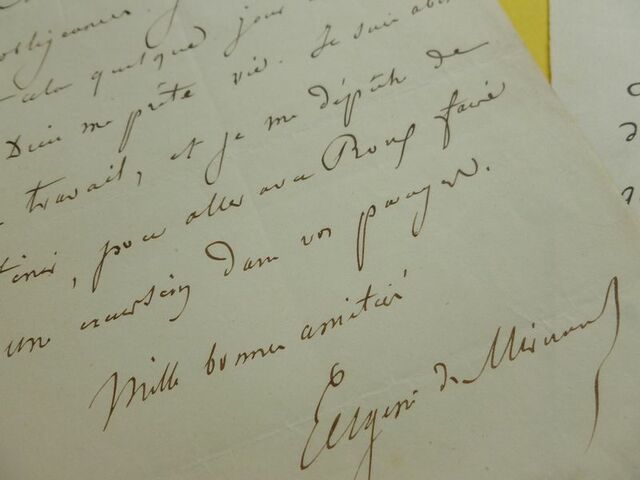 obligeance,
cela quelque jour
Dieu me prête vie. Je suis
travail, et je me dépêche de
finir, pour aller avec Roux faire
une excursion dans vos parages.
Mille bonnes amitiés
Eugène de Mirecourt